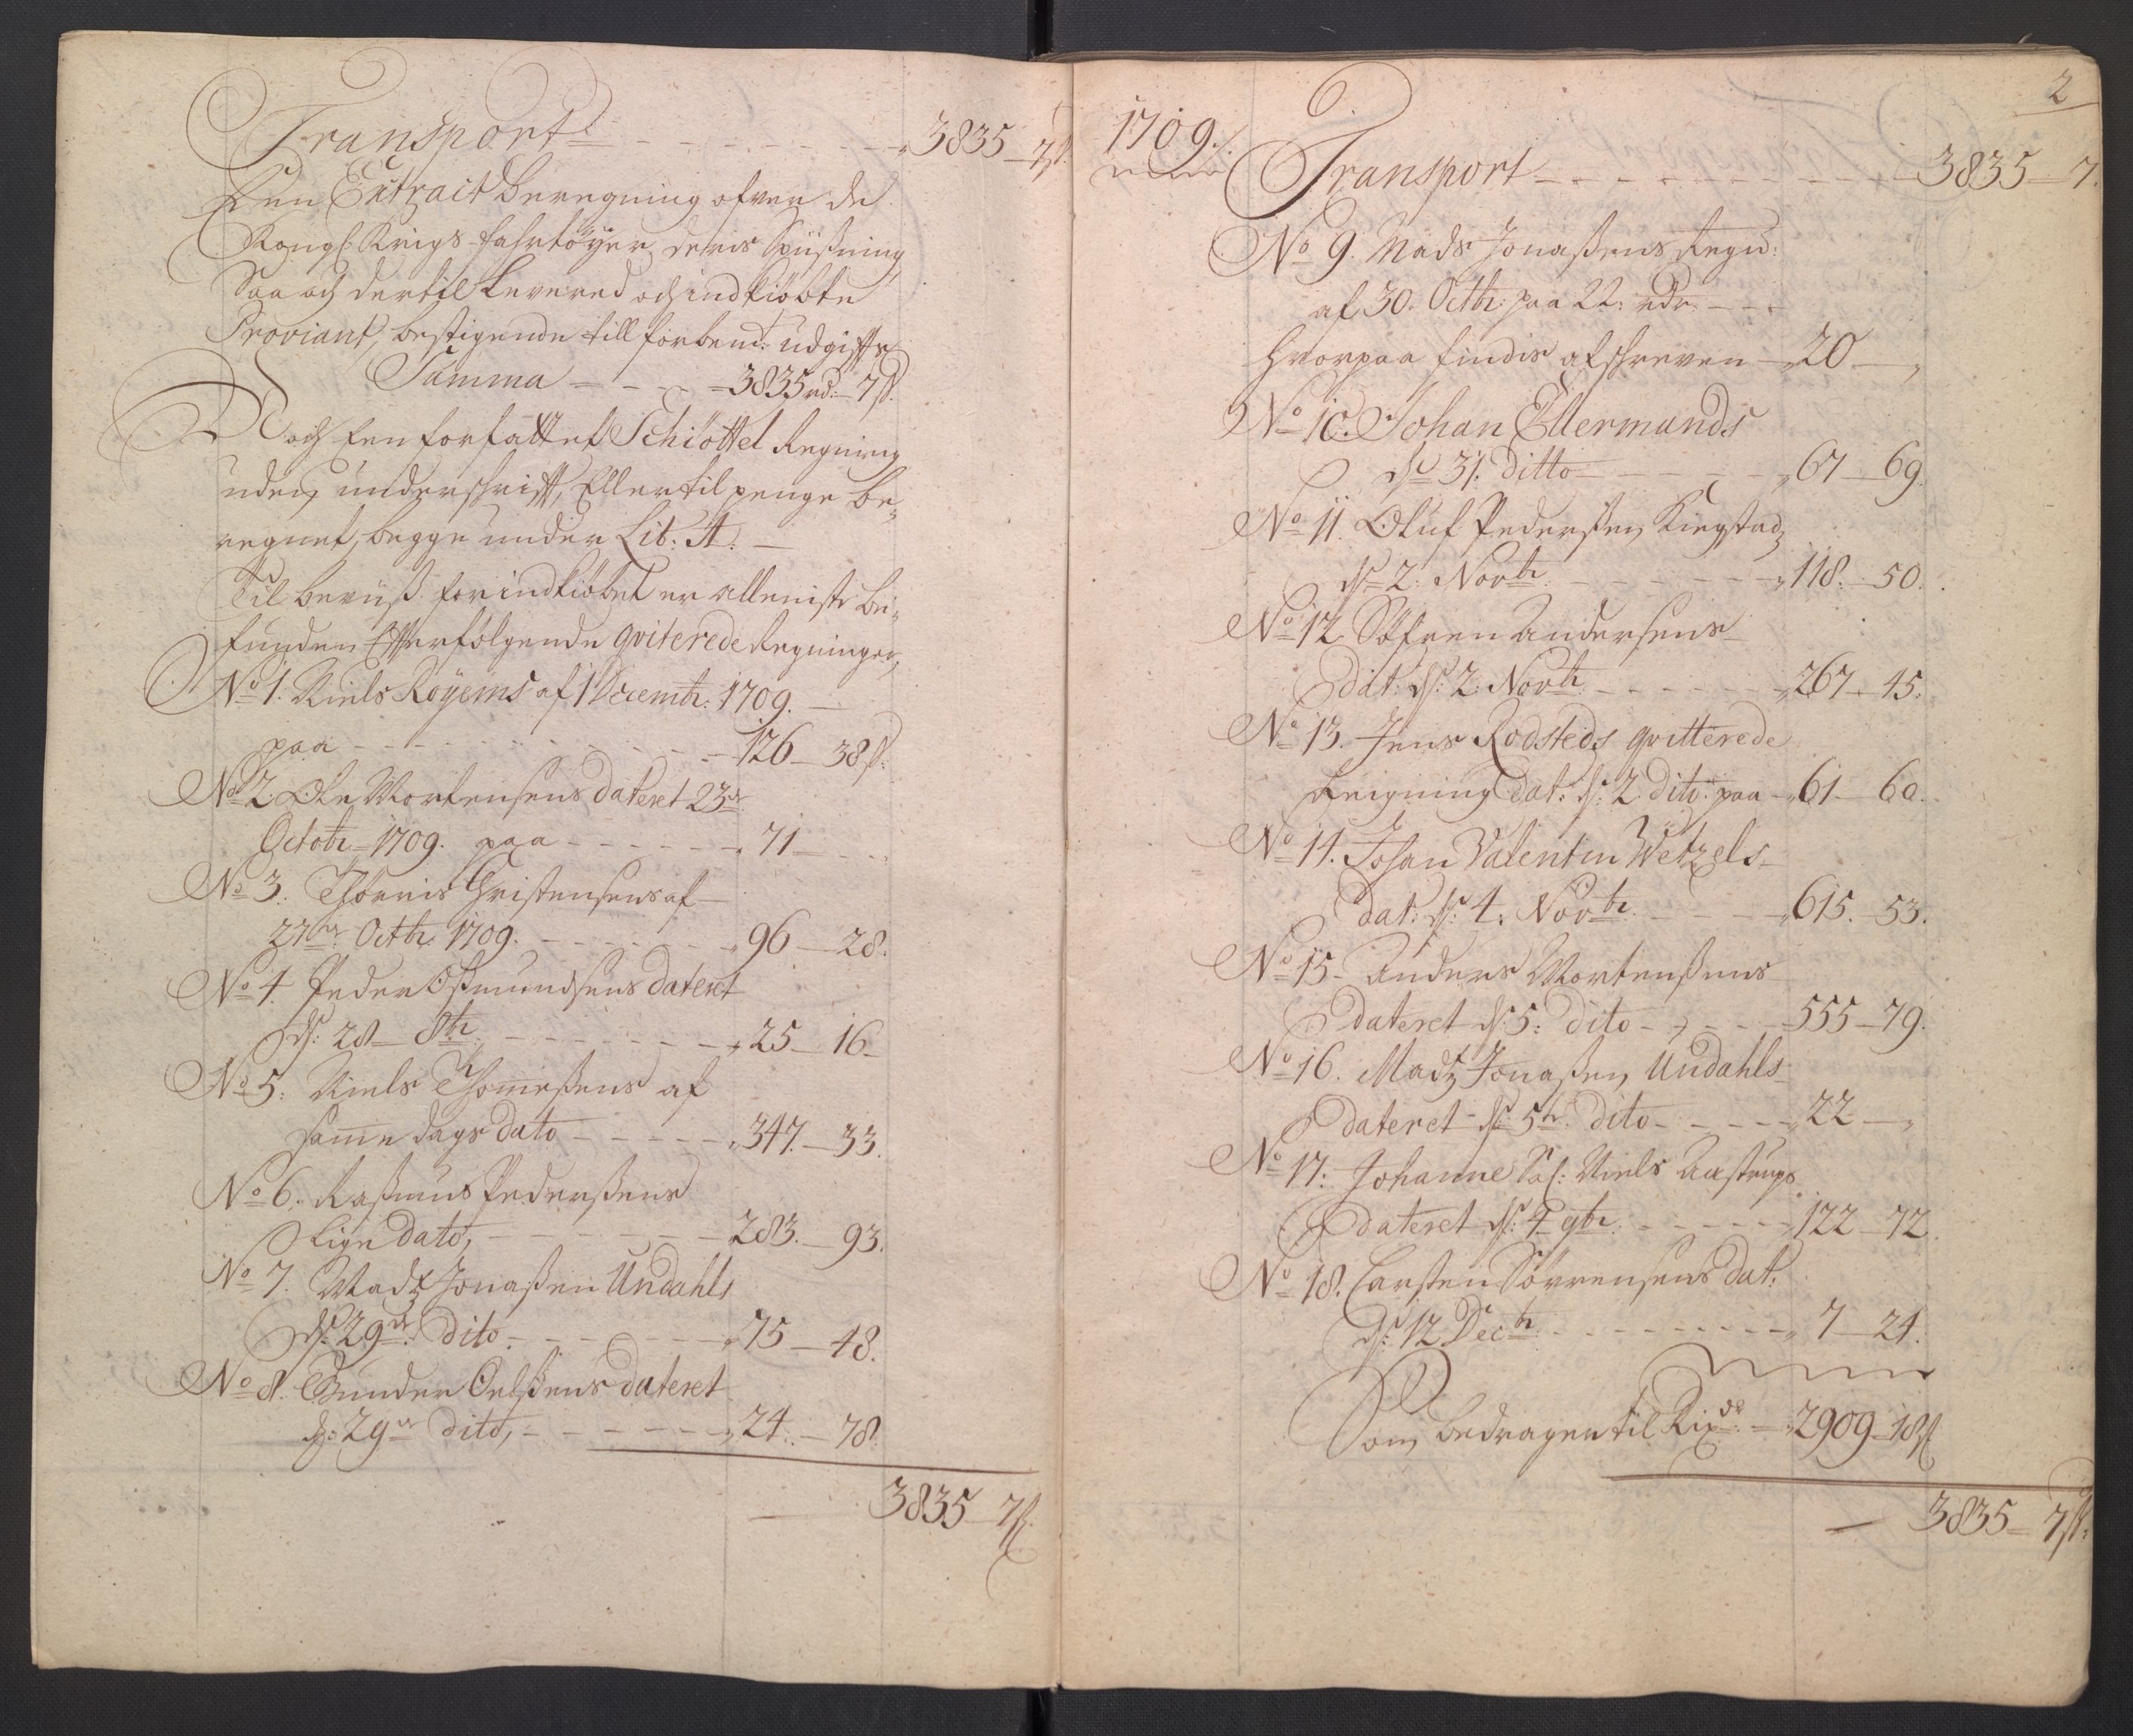 Transport - - - - - - - - - 3835 - 7ß.
Een Extrait beregning ofver de
Kongl: Krigs-fahrtöyer deris Spiißning
Saa och dertil levered och indkiöbte
Proviant, bestigende till forbem.t udgiffts
Summa - - - - 3835 rd: 7ß.
Noch Een forfattet Schiöttel Regning
uden underschrifft, Eller til penge be,
regnet, begge under Lit: A. -
Til beviiß for indkiöbet er alleniste be,
funden Efterfölgende qviterede Regninger,
No 1. Niels Röyems af 1 Decembr: 1709. -
paa - - - - - - - - 126 - 38ß.
No 2. Ole Mortensens dateret 23de
Octobr 1709. paa - - - - - 71 -
No 3. Thönnis Christensens af -
27de Octbr. 1709. - - - - - 96 - 28.
No 4. Peder Oßmundsens dateret
ds: 28 - 8br. - - - - - - 25 - 16 -
No 5: Niels Thomeßens af
samme dags dato - - - - - 347. - 33.
No 6. Raßmus Pederßens
lige dato, - - - - - - 283. - 93.
No 7. Madz Jonaßen Undahls
ds: 29de dito - - - - - - 75 - 48.
No 8. Gunder Oelßens dateret
ds: 29de dito, - - - - - - 24. - 78.
3835 - 7ß.
2
1709.
Transport - - - - - - - - - 3835 - 7.
No 9. Mads Jonaßens Regn:
af 30. Octbr: paa 22: rdr - - -
hvorpaa findis afschreven - 20 -
No 10. Johan Ellermands
ds 31. ditto - - - - - 67 - 69.
No 11. Oluf Pederßen Kiegstad
ds 2. Novbr. - - - - - - 118. - 50.
No 12 Söfren Andersens
dat: ds: 2. Novbr. - - - - - - 267 - 45.
No 13. Jens Rodsteds qvitterede
Reigning dat: ds: 2 dito paa - 61 - 60.
No 14. Johan Valentin Wetzels
dat: ds: 4. Novbr. - - - - 615. - 53.
No 15 - Anders Mortenßens
dateret ds 5: dito - - - - 555 - 79.
No 16. Madz Jonaßen Undahls
dateret ds: 5te dito - - - - 22 -
No 17: Johanne Sal: Niels Aastrups
dateret ds: 4 9br. - - - - - 122 - 72
No 18. Carsten Sörrensens dat:
ds: 12 Decbr. - - - - - - - - 7 - 24.
Som bedrager til Rixdr. - 2909 - 18ß
- 3835 - 7ß.